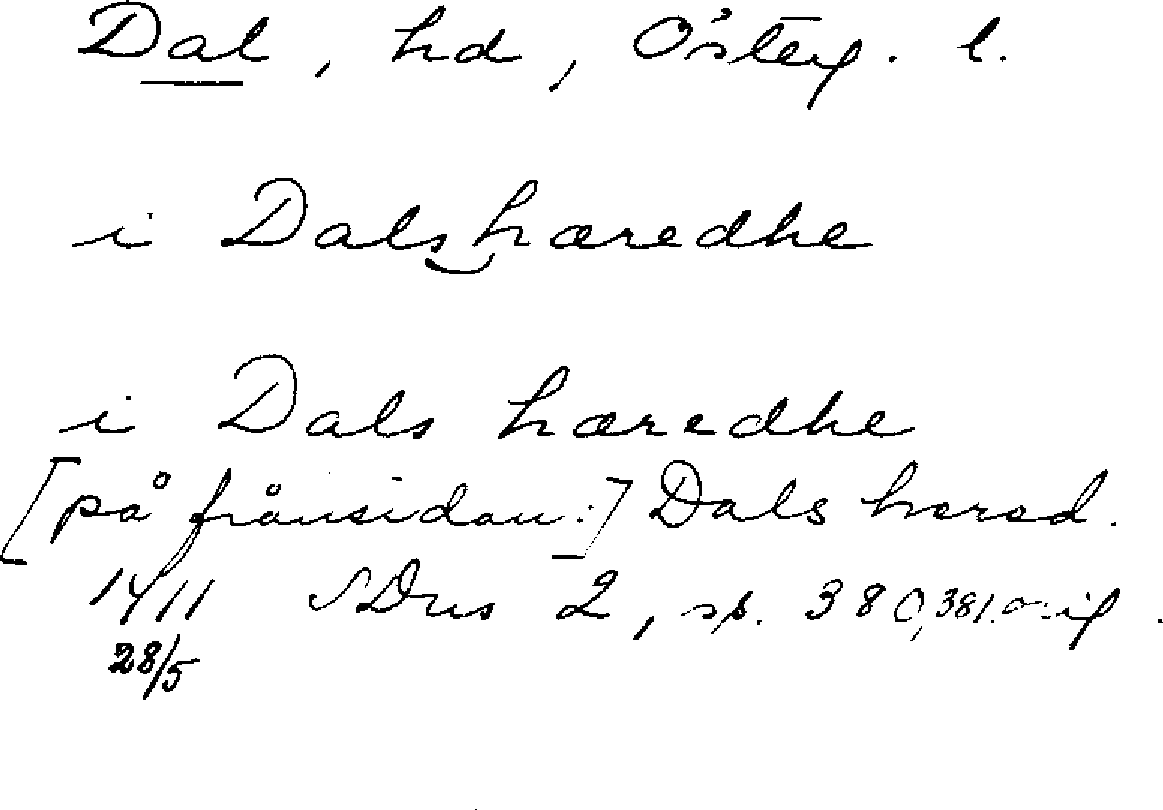 Dal, hd, Österg. l.
i Dalshæredhe
i Dals hæredhe
[på frånsidan:] Dals herad.
1411 SDns 2, sp. 380, 381. orig.
28/5